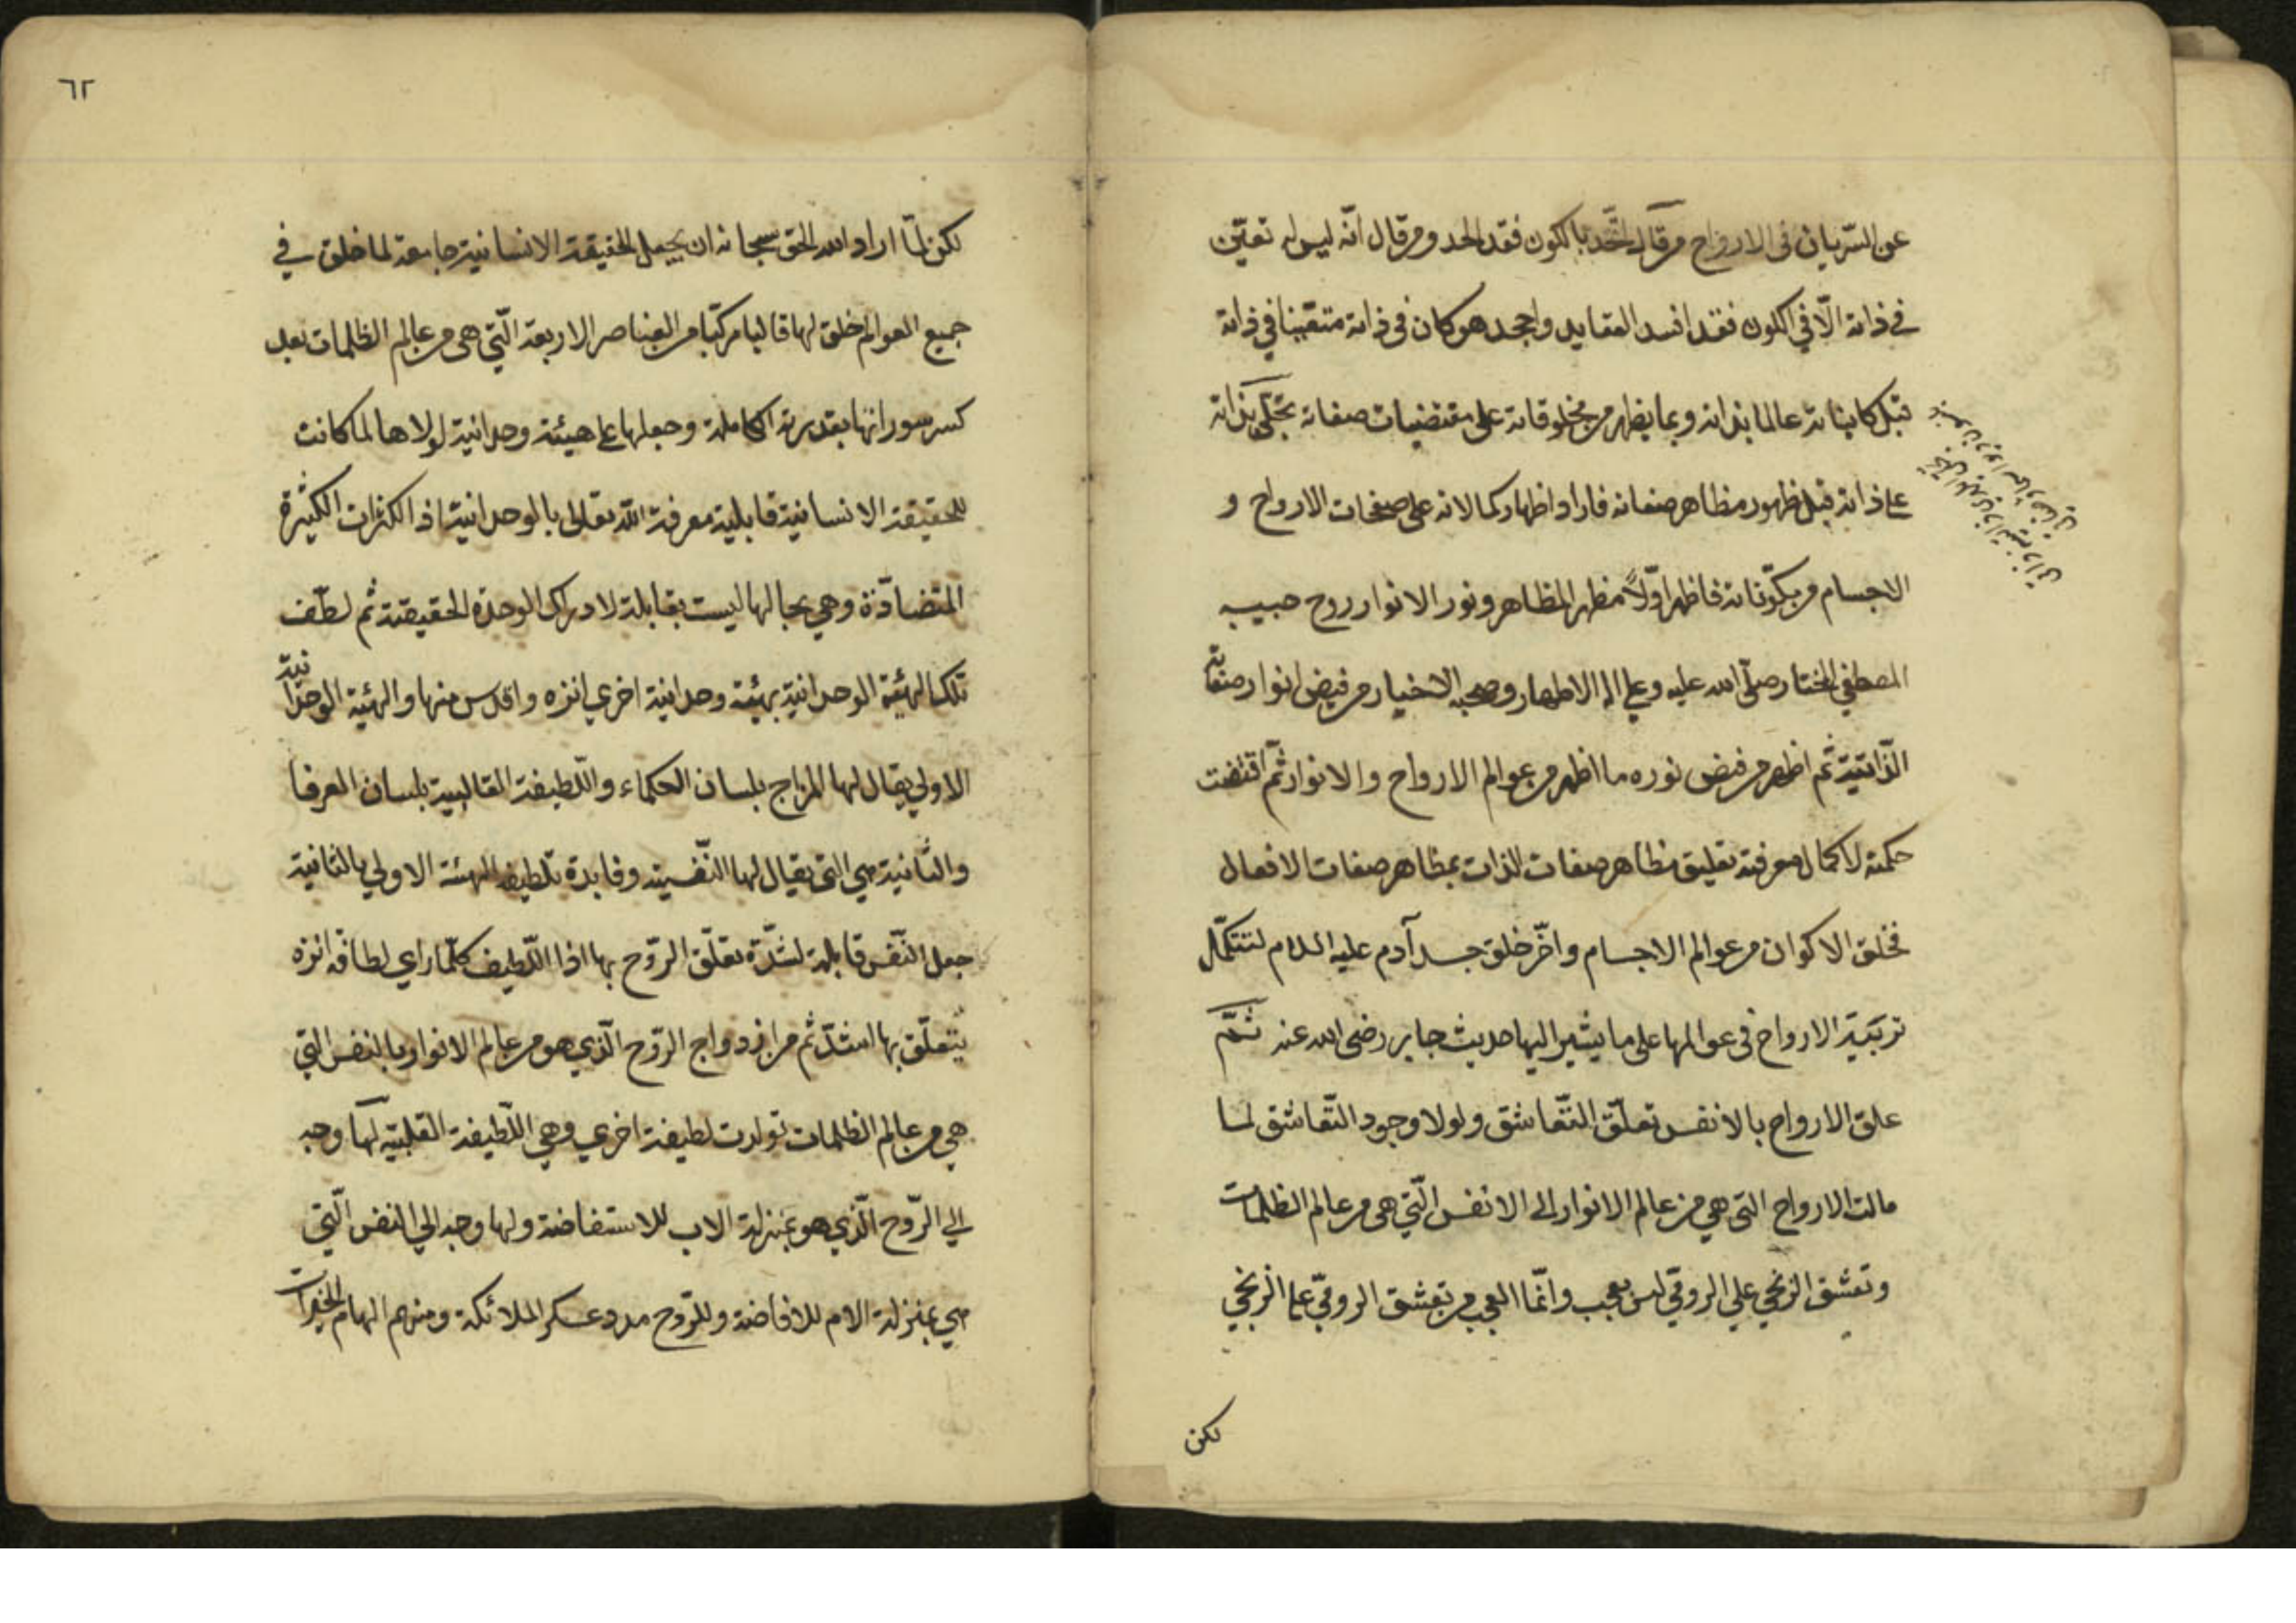 عن السّريان فى الارواح من قال اتّحد بالكون فقد الحد ومن قال انّه ليس له تعيّن
فى ذاته الّا في الكون فقد افسد العقايد واجحد هو كان فى ذاته متعيّنا في ذاته
قبل كايناته عالما بذاته وبما يظهر من مخلوقاته على مقتضيات صفاته تجلّى بذاته
على ذاته قبل ظهور مظاهر صفاته فاراد اظهار كمالاته على صفحات الارواح و
الاجسام من مكوّناته فاظهر اوّلاً مظهر المظاهر ونور الانوار روح حبيبه
المصطفي المختار صلّى الله عليه وعلي اله الاطهار وصحبه الاخيار من فيض انوار صفاته
الذّاتيّة ثم اظهر من فيض نوره ما اظهر من عوالم الارواح والانوار ثمّ اقتضت
حكمته لاكمال معرفته تعليق مظاهر صفات الذات بمظاهر صفات الافعال
فخلق الاكوان من عوالم الاجسام واخّر خلق جسد آدم عليه السلام لتتكمّل
تربَية الارواح فى عوالمها على ما يشير اليها حديث جابر رضى الله عنه ثمّ
علق الارواح بالانفس تعلّق التّعاشق ولولا وجود التّعاشق لما
مالت الارواح التى هي من عالم الانوار الى الانفس الّتي هى من عالم الظلمات
وتعشق الزنجي علي الرومّي ليس بعجب وانّما العجب من تعشق الرومّي على الزنجي
لكن
٦٢
لكن لمّا اراد الله الحق سبحانه ان يجعل الحقيقة الانسانية جامعة لما خلق في
جميع العوالم خلق لها قالبا مركّبا من العناصر الاربعة الّتي هى من عالم الظلمات بعد
كسر سوراتها بقدرته الكاملة وجعلها على هيئة وحدانية لولاها لما كانت
للحقيقة الانسانية قابلية معرفة اللّه تعالى بالوحدانية اذ الكثرات الكثيرة
المتضادّة وهي بحالها ليست بقابلة لادراك الوحدة الحقيقة ثم لطّف
تلك الهيّئة الوحدانية بهيئة وحدانية اخري انزه واقدس منها والهيئة الوحدانية
الاولي يقال لها المزاج بلسان الحكماء واللّطيفة القالبية بلسان العرفا
والثّانية هي التي يقال لها النّفسية وفايدة تلطيف الهيئة الاولي بالثانية
جعل النّفس قابلة لشدّة تعلّق الرّوح بها اذا اللّطيف كلّما راي لطافة انزه
يتعلّق بها اشدّ ثم من ازدواج الرّوح الّذي هو من عالم الانوار بالنفس التي
هي من عالم الظلمات تولدت لطيفة اخري وهي اللّطيفة القلبيّة لها وجه
الي الرّوح الّذي هو بمنزلة الاب للاستفاضة ولها وجه الي النفس الّتي
هي بمنزلة الام للافاضة وللرّوح مدد عسكر الملائكة ومنهم الهام الخيرات